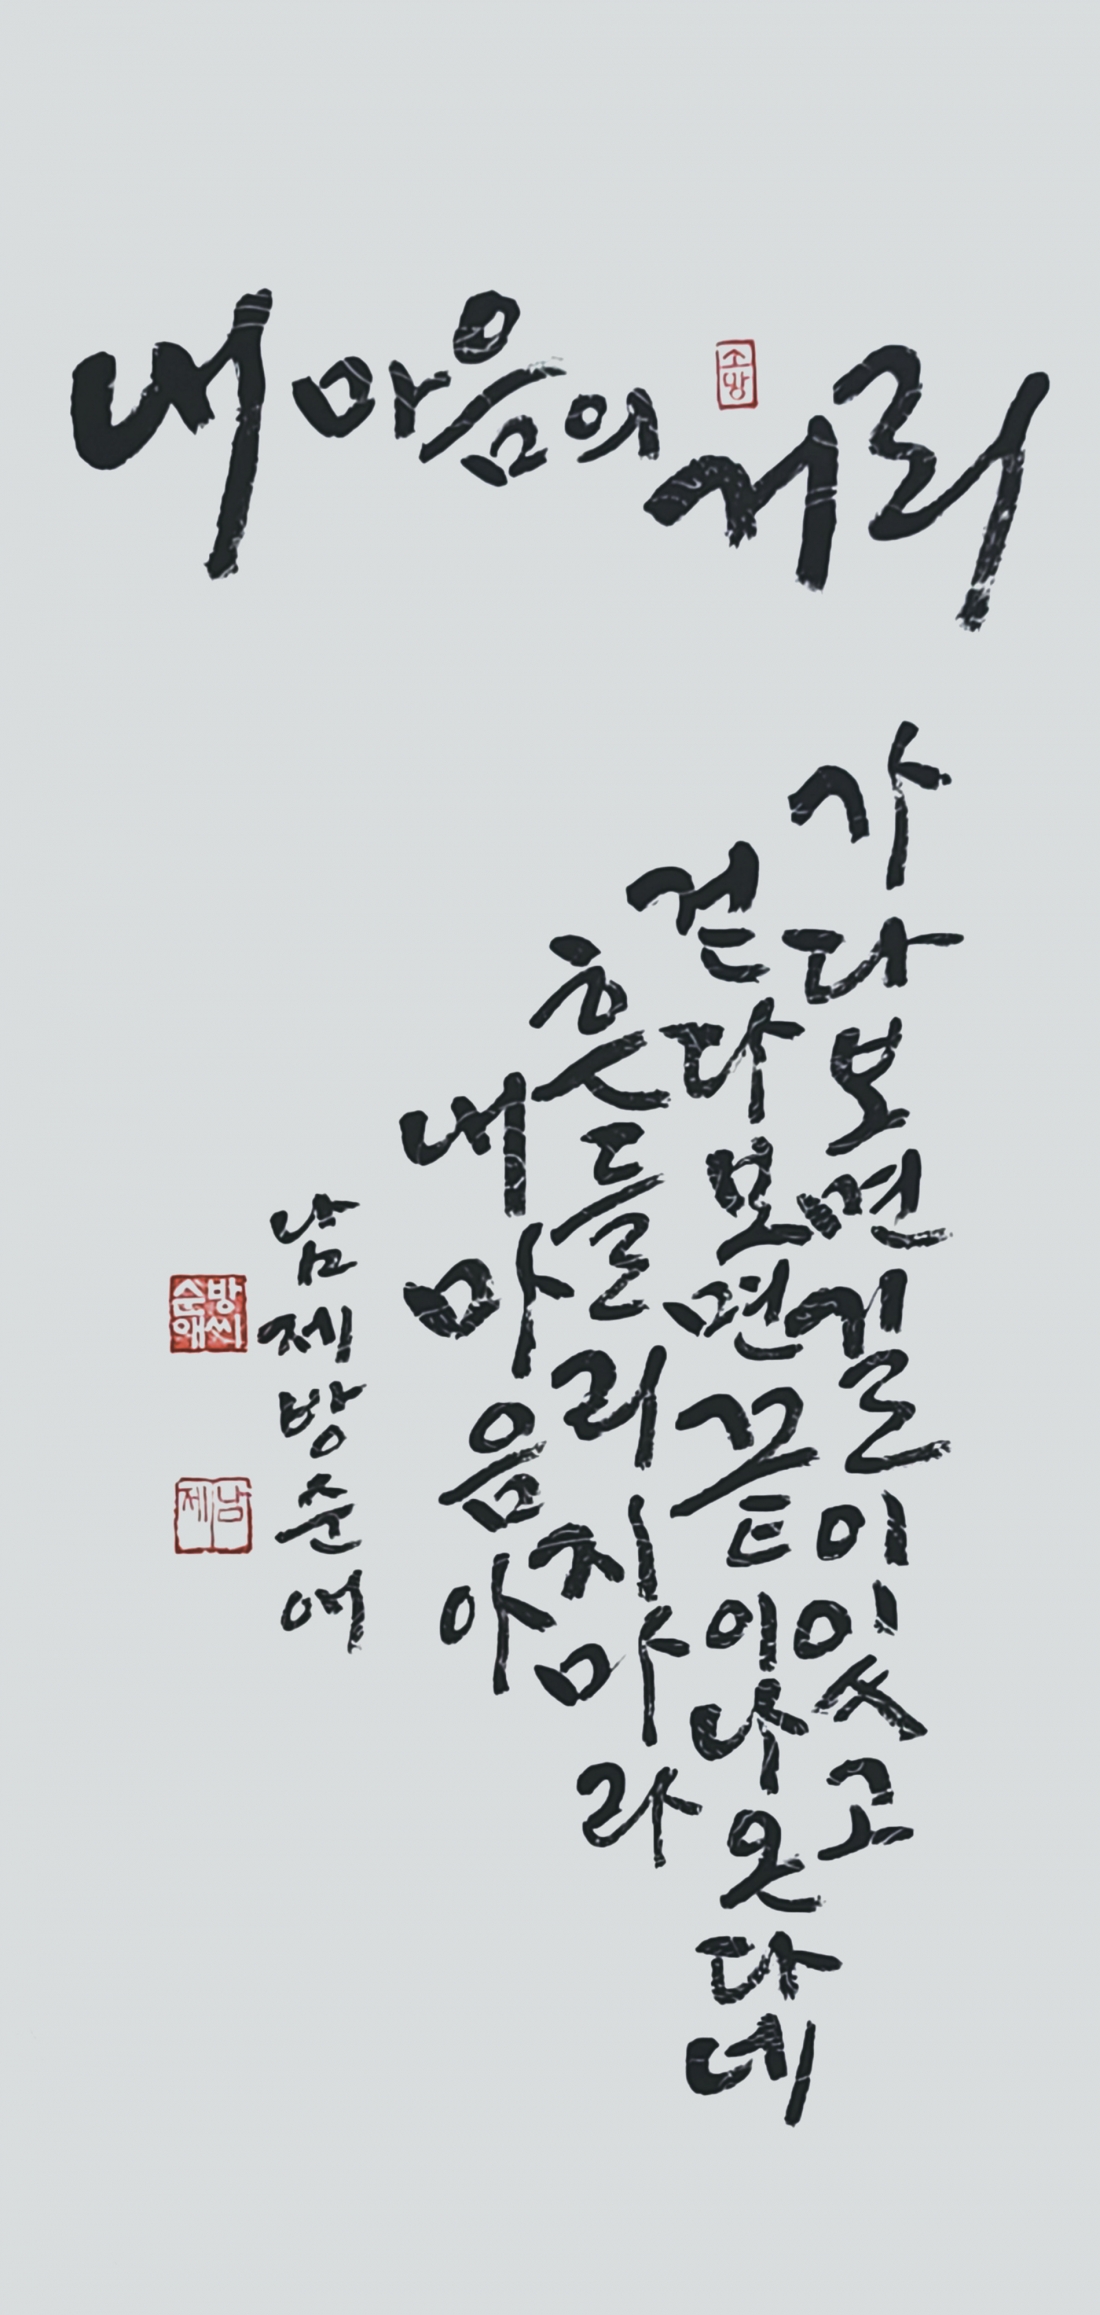 내 마음의 거리
소망
가다보면 길이 있고
걷다보면 끝이 나온다네
흔들리지 마라
내 마음아
남제 방순애
방씨순애
남제